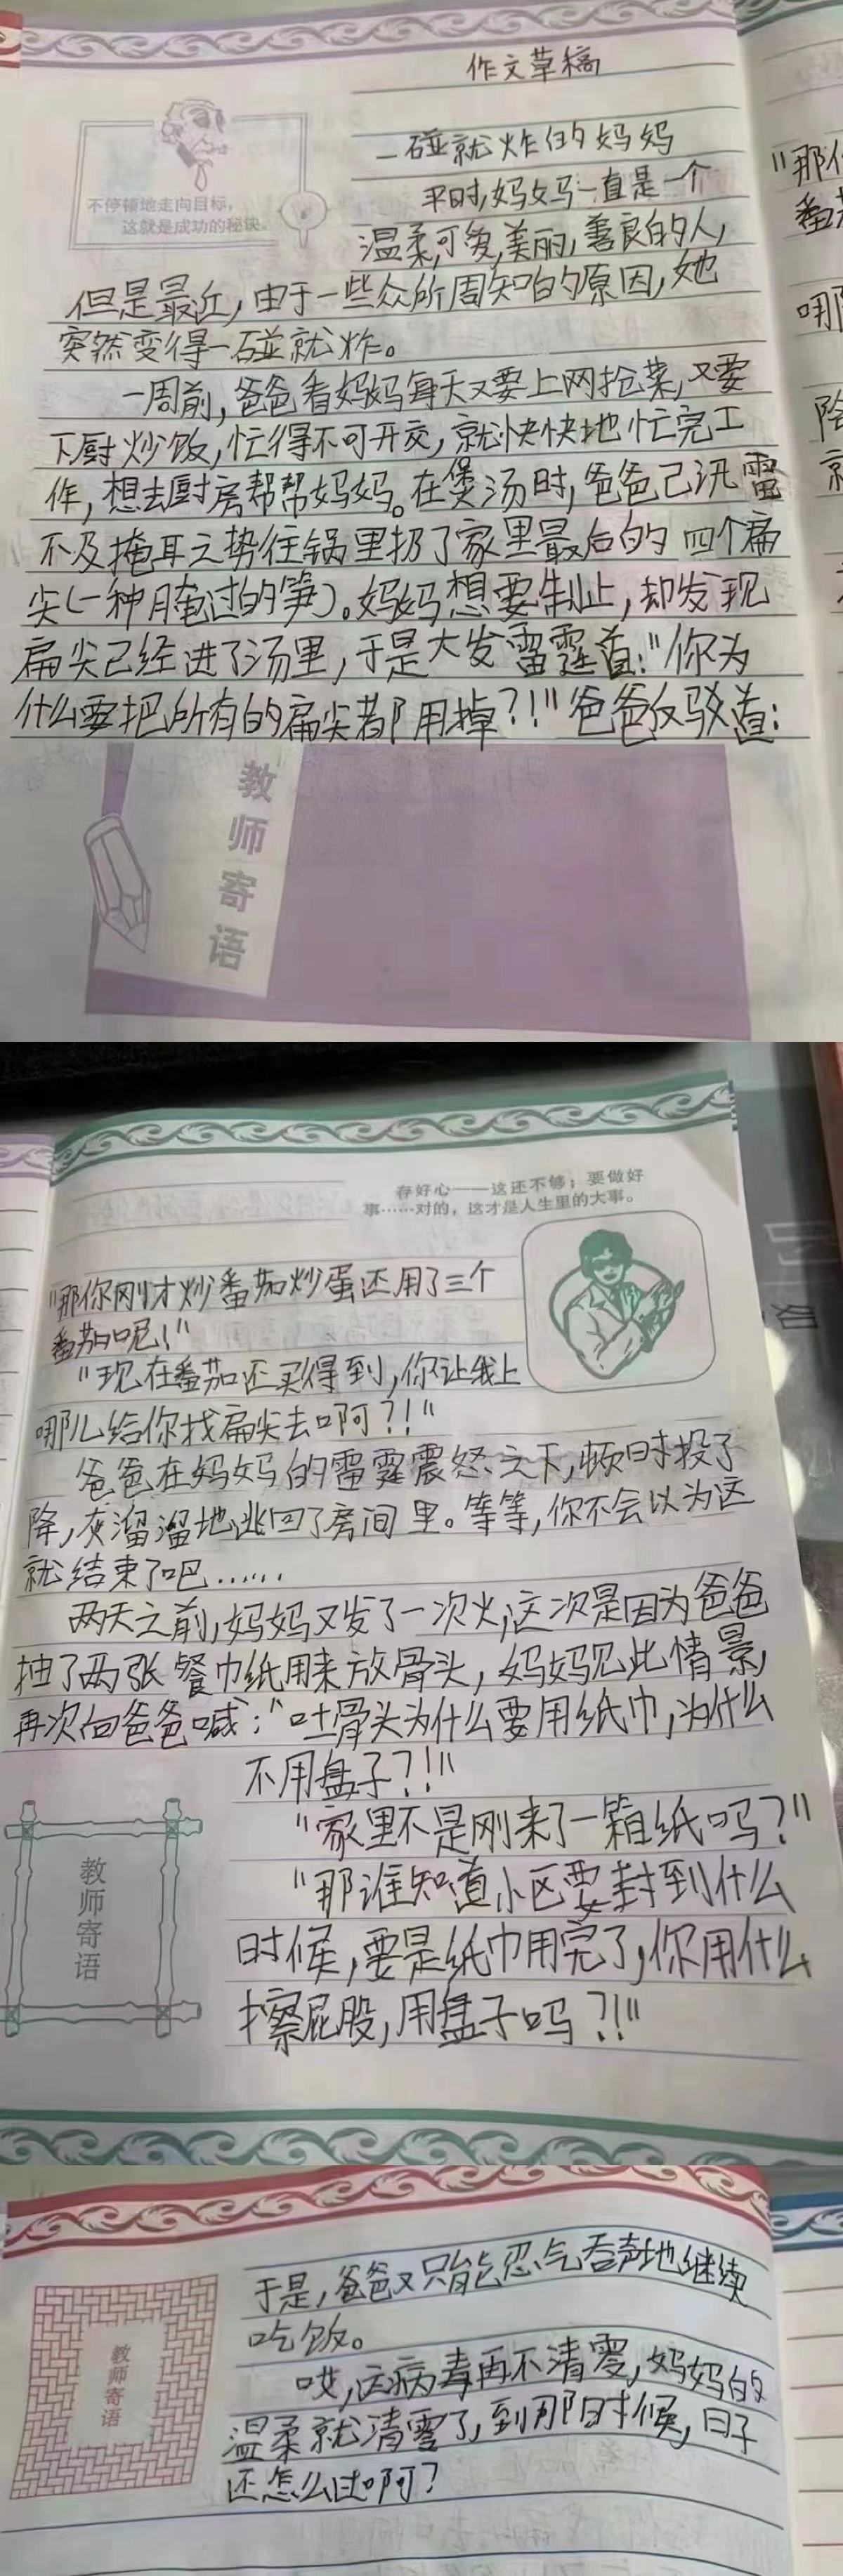 作文草稿
一碰就炸的妈妈
平时,妈妈一直是一个
不停顿地走向目标,
这就是成功的秘诀。
温柔,可爱,美丽,善良的人,
但是最近,由于一些众所周知的原因,她
突然变得一碰就炸。
一周前,爸爸看妈妈每天又要上网抢菜,又要
下厨炒饭,忙得不可开交,就快快地忙完工
作,想去厨房帮帮妈妈。在煲汤时,爸爸已汛雷
不及掩耳之势往锅里扔了家里最后的四个扁
尖(一种腌过的笋)。妈妈想要制止,却发现
扁尖已经进了汤里,于是大发雷霆道:"你为
什么要把所有的扁尖都用掉?!"爸爸反驳道:
教师寄语
存好心——这还不够;要做好
事……对的,这才是人生里的大事。
"那你刚才炒番茄炒蛋还用了三个
番茄呢!"
"现在番茄还买得到,你让我上
哪儿给你找扁尖去啊?!"
爸爸在妈妈的雷霆震怒之下,顿时投了
降,灰溜溜地逃回了房间里。等等,你不会以为这
就结束了吧……
两天之前,妈妈又发了一次火,这次是因为爸爸
抽了两张餐巾纸用来放骨头,妈妈见此情景,
再次向爸爸喊:"吐骨头为什么要用纸巾,为什么
不用盘子?!"
"家里不是刚来了一箱纸吗?"
"那谁知道小区要封到什么
时候,要是纸巾用完了,你用什么
擦屁股,用盘子吗?!"
教师寄语
于是,爸爸又只能忍气吞声地继续
吃饭。
哎,这病毒再不清零,妈妈的
温柔就清零了,到那时候,日子
还怎么过啊?
教师寄语